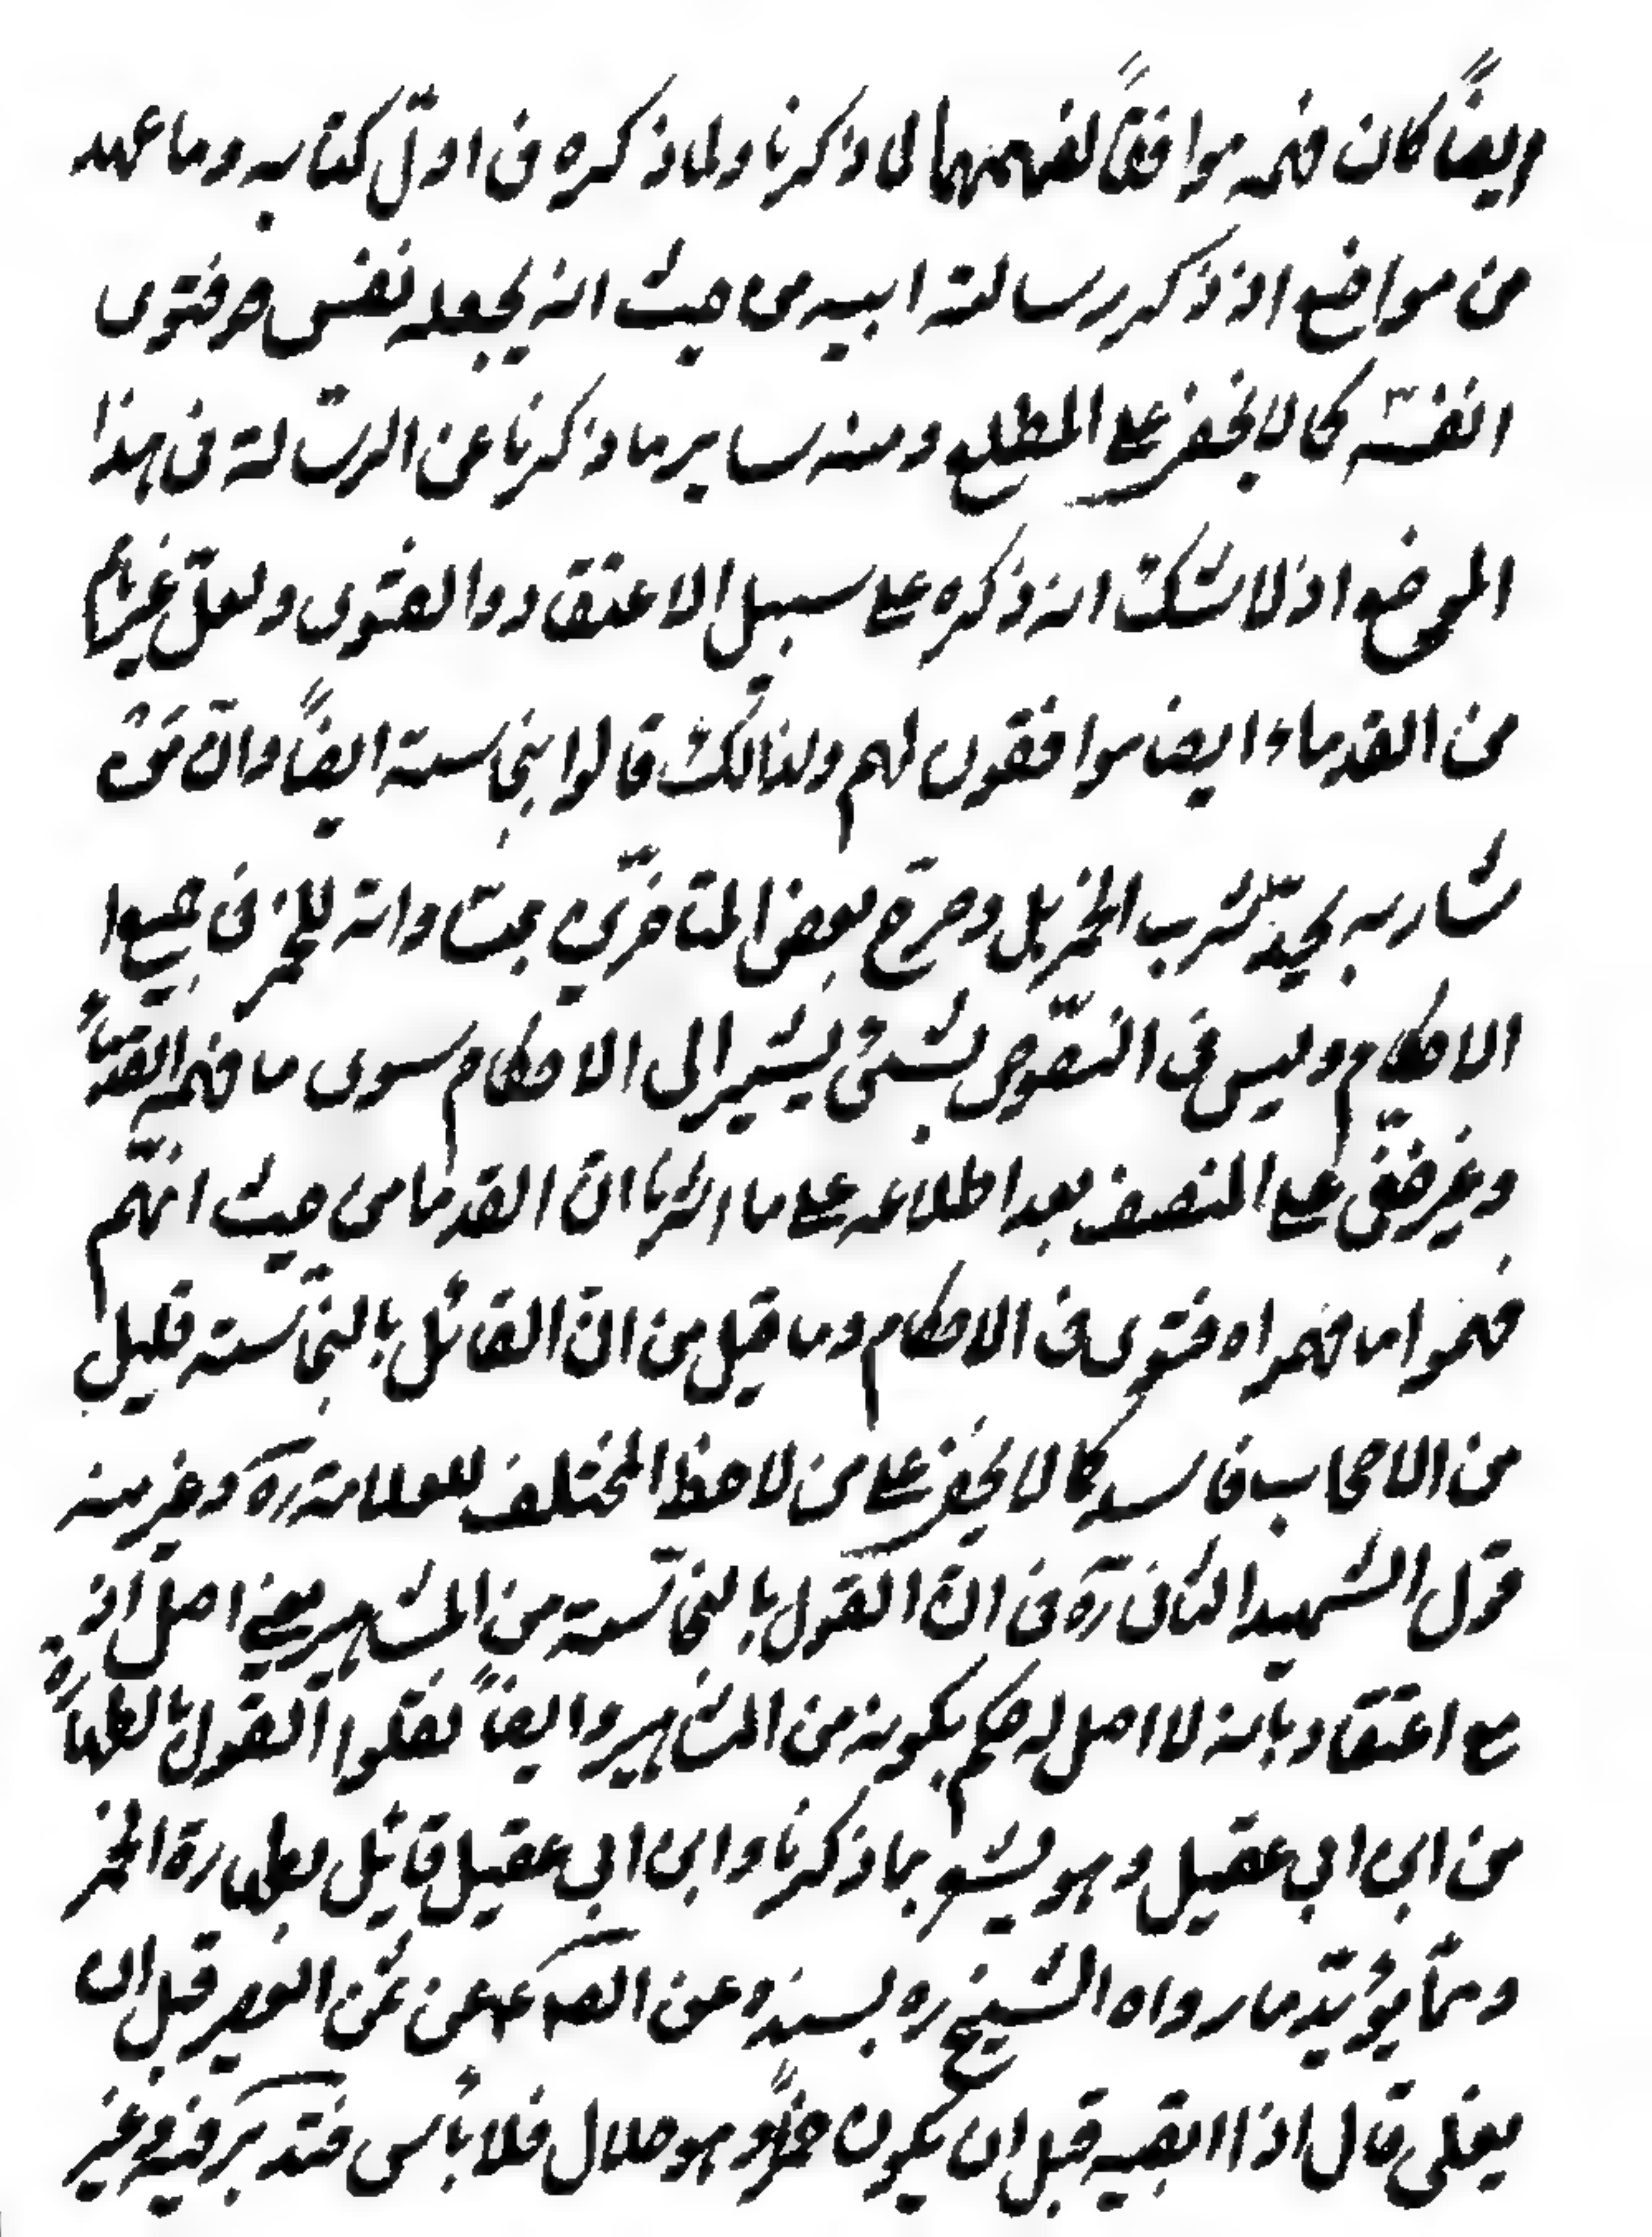 وايضاً كان فهمه موافقاً لفهمهما لما ذكرنا ولما ذكره فى اوّل كتابه وما عهد
من مواضع اذ ذكر رسالة ابيه من حيث انه يجعله نفس هو فتوى
نفسه كما لا يخفى على المطلع ومنه ساير ما ذكرنا عن الرسالة فى هذا
الموضع اذ لا شك انه ذكره على سبيل الاعتقاد والفتوى ولعلّ غيرهم
من القدماء ايضا موافقون لهم ولذلك قالوا بنجاسته ايضاً وانّ
شاربه يحدّ كشرب الخمر بل وصرّح بعض المتاخرين بمساواته للخمر فى جميع
الاحكام وليس فى النصّوص شىء يشير الى الاحكام سوى ما فهمه القدماء
وغير خفّى على المنصف بعد اطلاعه على ما اشرنا انّ القدما من حيث انهّم
فهموا ما فهموا فتوى فى الاحكام وما قيل من انّ القائل بالنجّاسته قليل
من الاصحاب فاسد كما لا يخفى على من لاحظ المختلف للعلامة ره وغير منه
قول الشهيد الثانى ره فى انّ القول بالنجّاسته من المشاهير بغير اصل اذ
مع اعتقاد بانه لا اصل له حكم بكونه من المشاهير وايضاً نقلوا القول بالطهارة
من ابن ابى عقيل وهو يشعر بما ذكرنا وابن ابى عقيل قائل بطهارة الخمر
وممّا يؤيدّ ما رواه الشيخ ره بسنده عن الصه ع عن ثمن العصير قبل ان
يغلى قال اذا ابقيه قبل ان يكون خمراً وهو حلال فلا باس فتدبّر فيه وغير